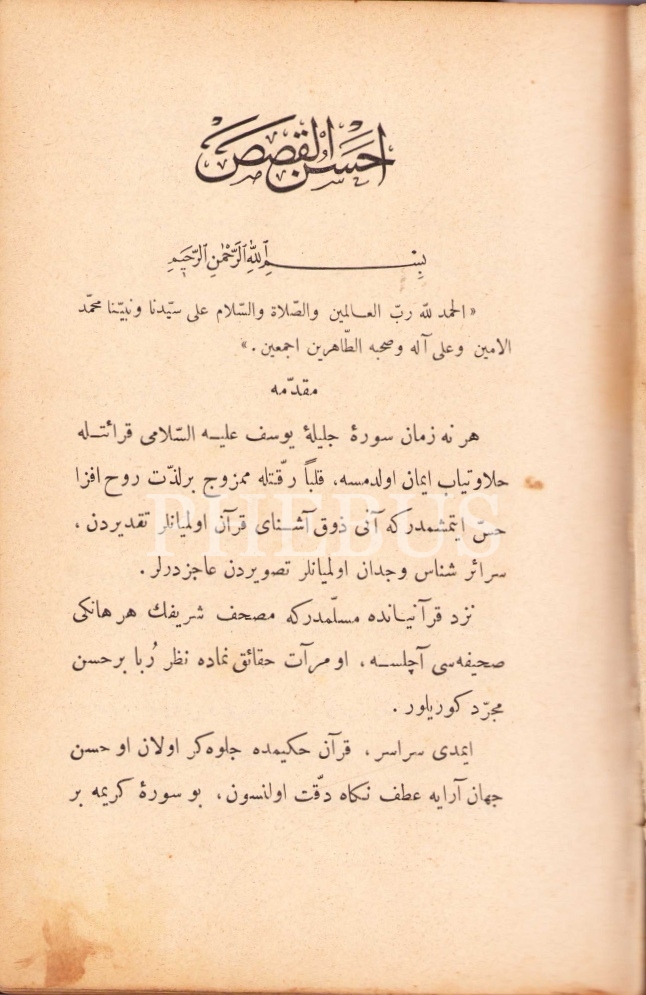 احسن القصص
بِسْمِ ٱللهِ ٱلرَّحْمٰنِ ٱلرَّحِيمِ
« الحمد لله ربّ العـالمين والصّلاة والسّلام على سيّدنا ونبيّنا محمّد
الامين وعلى آله وصحبه الطّاهرين اجمعين . »
مقدّمه
هر نه زمان سورۀ جليلۀ يوسف عليه السّلامى قرائتله
حلاوتياب ايمان اولدمسه، قلباً رقّتله ممزوج برلذّت روح افزا
حسّ ايتمشمدركه آنى ذوق آشناى قرآن اولميانلر تقديردن ،
سرائر شناس وجدان اولميانلر تصويردن عاجزدرلر .
نزد قرآنيانده مسلّمدركه مصحف شريفك هر هانكى
صحيفه‌سى آچلسه، او مرآت حقائق نماده نظر رُبا برحسن
مجرّد كوريلور .
ايمدى سراسر، قرآن حكيمده جلوه‌كر اولان او حسن
جهان آرايه عطف نكاه دقّت اولنسون، بو سورۀ كريمه بر
PHEBUS